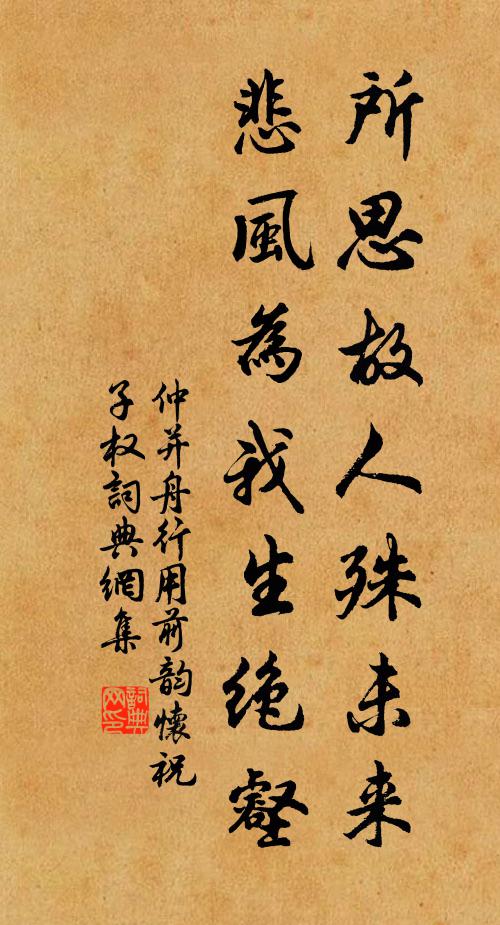 所思故人殊未来
悲風為我生绝壑
仲并舟行用前韵懷祝
子权詞典網集
詞典网印